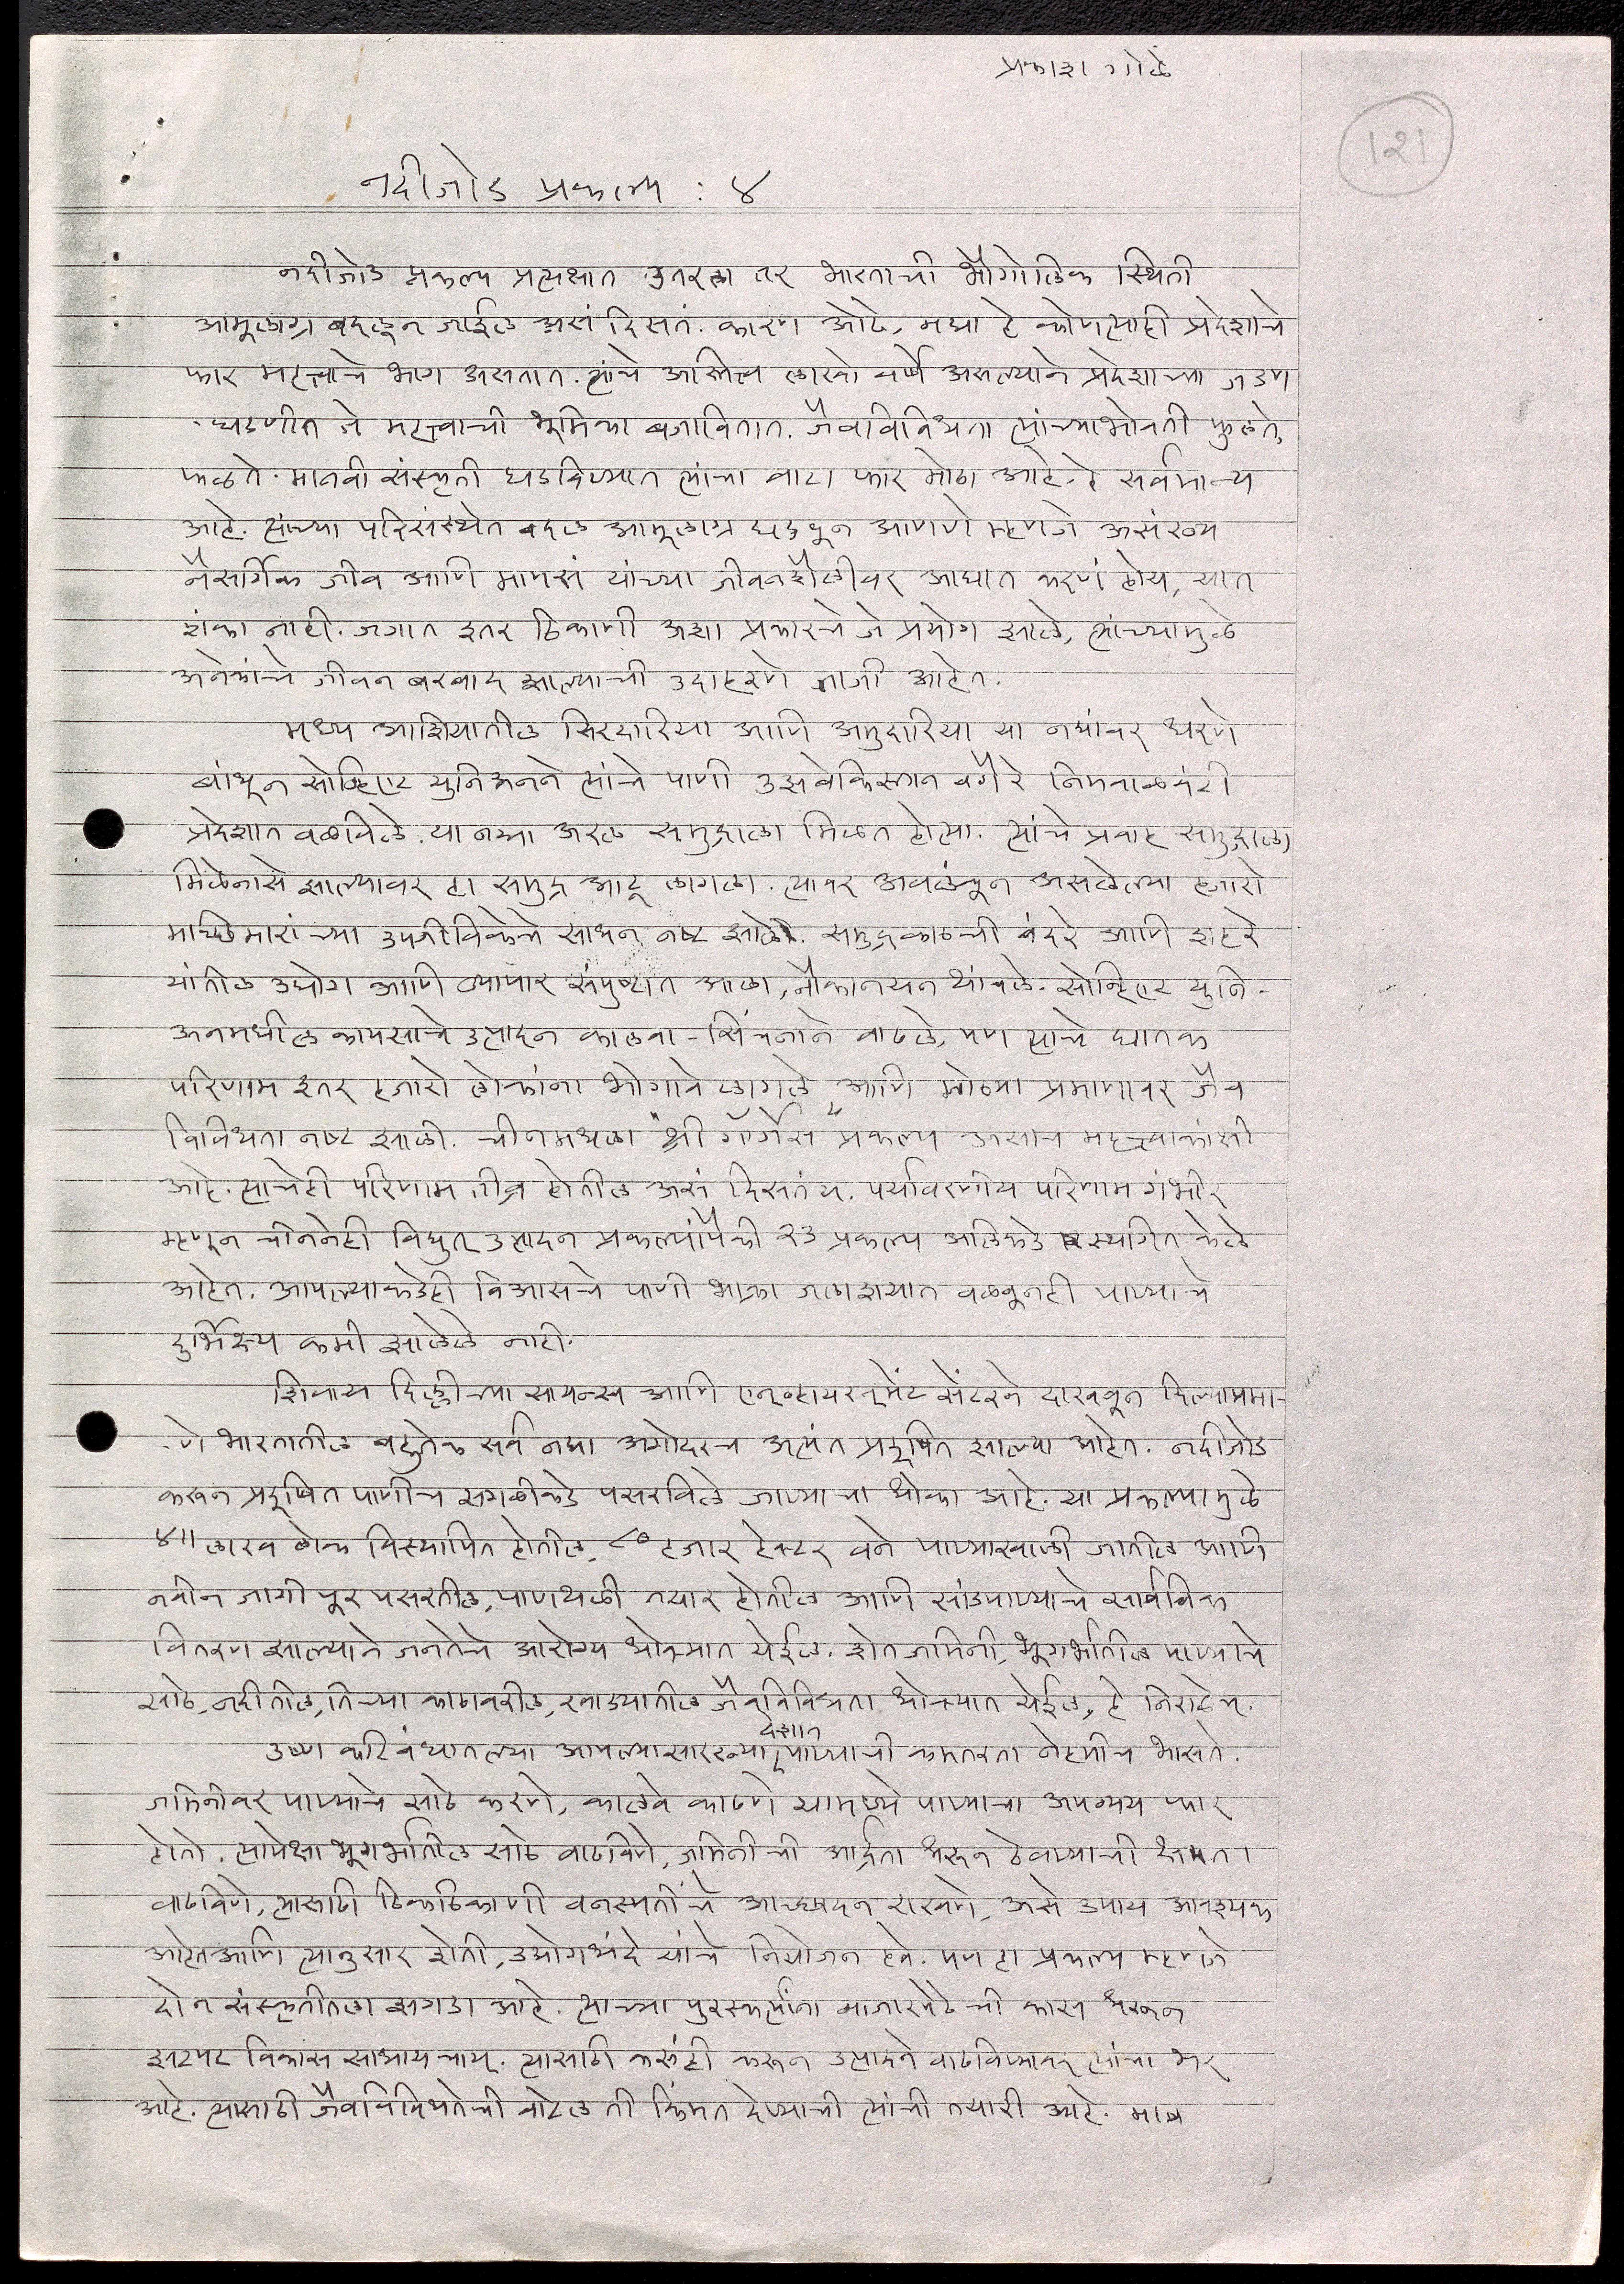 प्रकाश गोळे
121
नदीजोड प्रकल्प : ४
नदीजोड प्रकल्प प्रत्यक्षात उतरला तर भारताची भौगोलिक स्थिती
आमूलाग्र बदलून जाईल असं दिसतं. कारण ओढे, नद्या हे कोणत्याही प्रदेशाचे
फार महत्त्वाचे भाग असतात. त्यांचे अस्तित्व लाखो वर्षे असल्याने प्रदेशाच्या जडण
घडणीत ते महत्त्वाची भूमिका बजावितात. जैवविविधता त्यांच्याभोवती फुलते,
फळते. मानवी संस्कृती घडविण्यात त्यांचा वाटा फार मोठा आहे हे सर्वमान्य
आहे. त्यांच्या परिसंस्थेत बदल आमूलाग्र घडवून आणणे म्हणजे असंख्य
नैसर्गिक जीव आणि माणसं यांच्या जीवनशैलीवर आघात करणं होय, यात
शंका नाही. जगात इतर ठिकाणी अशा प्रकारचे जे प्रयोग झाले, त्यांच्यामुळे
अनेकांचे जीवन बरबाद झाल्याची उदाहरणे ताजी आहेत.
मध्य आशियातील सिरदारिया आणि अमुदारिया या नद्यांवर धरणे
बांधून सोव्हिएट युनिअनने त्यांचे पाणी उझबेकिस्तान वगैरे निमवाळवंटी
प्रदेशात वळविले. या नद्या अरल समुद्राला मिळत होत्या. त्यांचे प्रवाह समुद्राला
मिळेनासे झाल्यावर हा समुद्र आटू लागला. त्यावर अवलंबून असलेल्या हजारो
माच्छिमारांच्या उपजीविकेचे साधन नष्ट झाले. समुद्रकाठची बंदरे आणि शहरे
यांतील उद्योग आणि व्यापार संपुष्टात आला, नौकानयन थांबले. सोव्हिएट युनि-
अनमधील कापसाचे उत्पादन कालवा-सिंचनाने वाढले, पण त्याचे घातक
परिणाम इतर हजारो लोकांना भोगावे लागले आणि मोठ्या प्रमाणावर जैव
विविधता नष्ट झाली. चीनमधला "थ्री गॉर्जेस" प्रकल्प असाच महत्त्वाकांक्षी
आहे. त्याचेही परिणाम तीव्र होतील असं दिसतंय. पर्यावरणीय परिणाम गंभीर
म्हणून चीननेही विद्युत् उत्पादन प्रकल्पांपैकी २३ प्रकल्प अलिकडे स्थगित केले
आहेत. आपल्याकडेही बिआसचे पाणी भाक्रा जलाशयात वळवूनही पाण्याचे
दुर्भिक्ष्य कमी झालेले नाही.
शिवाय दिल्लीच्या सायन्स आणि एन्व्हायरन्मेंट सेंटरने दाखवून दिल्याप्रमा-
णे भारतातील बहुतेक सर्व नद्या अगोदरच अत्यंत प्रदूषित झाल्या आहेत. नदीजोड
करून प्रदूषित पाणीच सगळीकडे पसरविले जाण्याचा धोका आहे. या प्रकल्पामुळे
४॥ लाख लोक विस्थापित होतील, ८० हजार हेक्टर वने पाण्याखाली जातील आणि
नवीन जागी पूर पसरतील, पाणथळी तयार होतील आणि सांडपाण्याचे सार्वत्रिक
वितरण झाल्याने जनतेचे आरोग्य धोक्यात येईल. शेतजमिनी, भूगर्भातील पाण्याचे
साठे, नदीतील, तिच्या काठावरील, खाड्यातील जैवविविधता धोक्यात येईल, हे निराळेच.
उष्ण कटिबंधातल्या आपल्यासारख्या देशात पाण्याची कमतरता नेहमीच भासते.
जमिनीवर पाण्याचे साठे करणे, कालवे काढणे यामध्ये पाण्याचा अपव्यय फार
होतो. त्यापेक्षा भूगर्भातील साठे वाढविणे, जमिनीची आर्द्रता धरून ठेवण्याची क्षमता
वाढविणे, त्यासाठी ठिकठिकाणी वनस्पतींचे आच्छादन राखणे, असे उपाय आवश्यक
आहेत आणि त्यानुसार शेती, उद्योगधंदे यांचे नियोजन हवे. पण हा प्रकल्प म्हणजे
दोन संस्कृतीतला झगडा आहे. त्याच्या पुरस्कर्त्यांना बाजारपेठेची कास धरून
झटपट विकास साधायचाय. त्यासाठी कसंही करून उत्पादने वाढविण्यावर त्यांचा भर
आहे. त्यासाठी जैवविविधतेची वाटेल ती किंमत देण्याची त्यांची तयारी आहे. मात्र